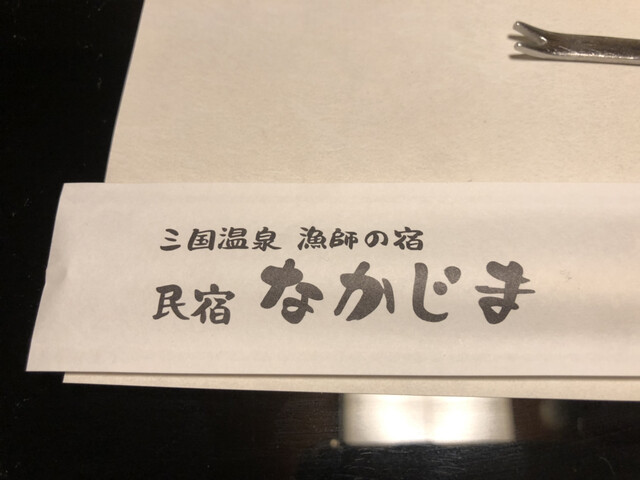 三国温泉 漁師の宿
民宿 なかじま